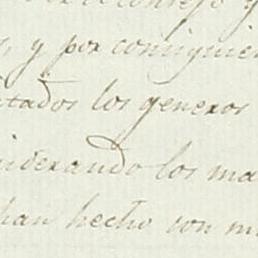 consejo y
s, y por consiguien
tados los generos
siderando los ma
han hecho con m